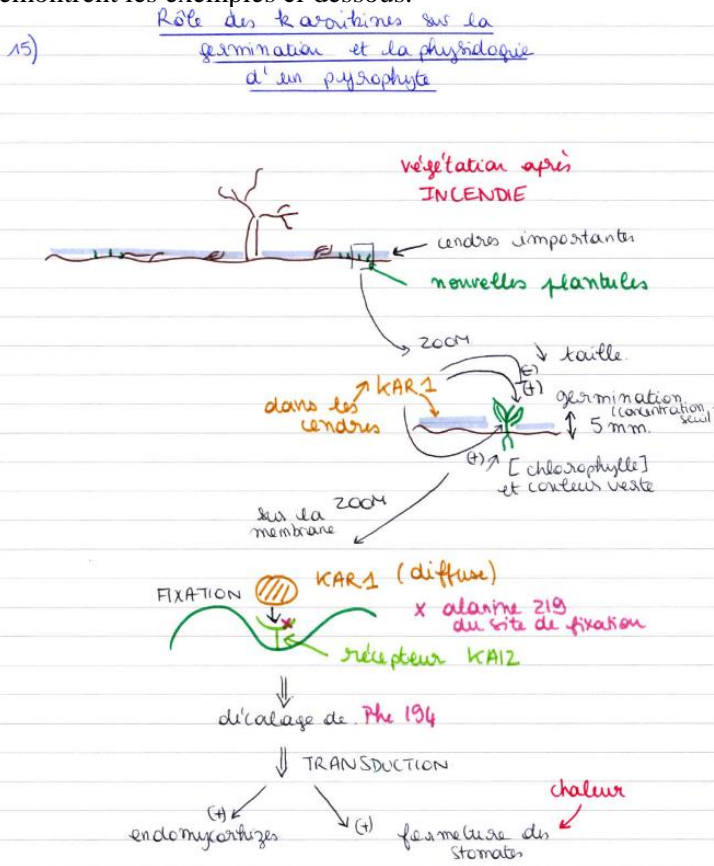 émontrent les exemples ci-dessous.
Rôle des karrikines sur la
15) germination et la physiologie
d'un pyrophyte
végétation après
INCENDIE
cendres importantes
nouvelles plantules
ZOOM
↓ taille
(-)
KAR1
(+)
germination
(concentration
seuil
dans les
cendres
5 mm.
(+) ↗ [chlorophylle]
et couleur verte
ZOOM
sur la
membrane
KAR1 (diffuse)
FIXATION
x alanine 219
du site de fixation
récepteur KAI2
décalage de Phe 194
TRANSDUCTION
chaleur
(+) (+)
endomycorhizes fermeture des
stomates